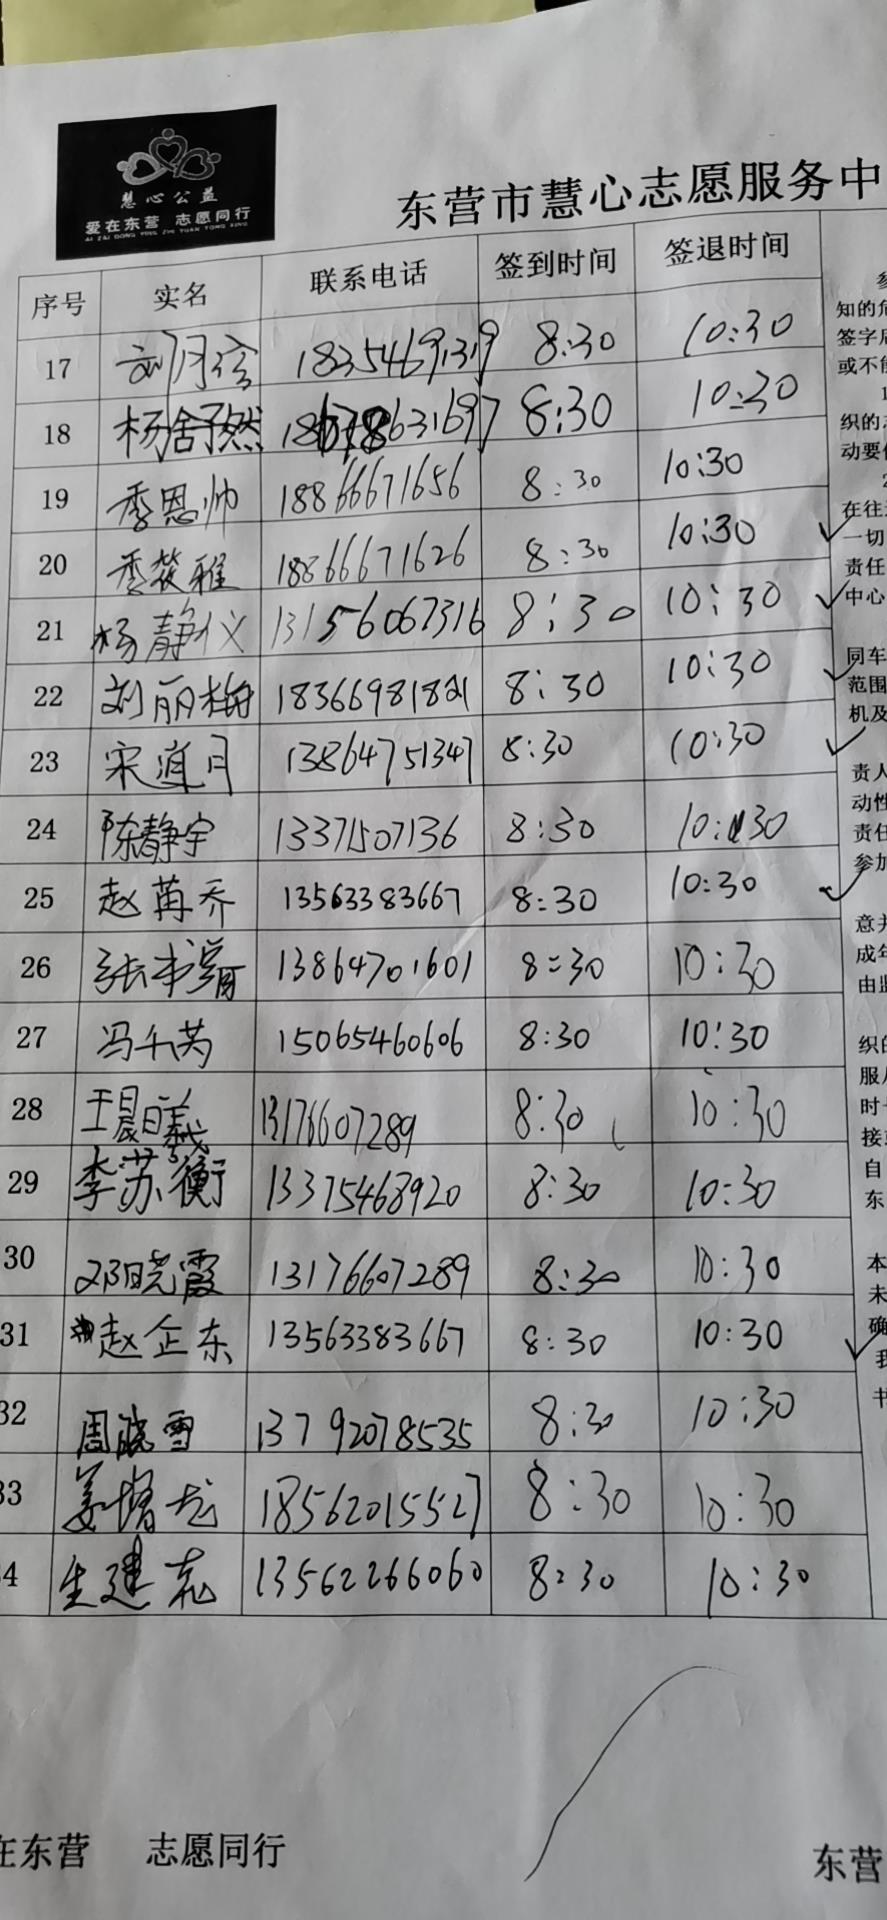 慧心公益
爱在东营 志愿同行
AI ZAI DONG YING ZHI YUAN TONG XING
东营市慧心志愿服务中
序号 实名 联系电话 签到时间 签退时间
17 刘月 8:30 10:30
18 杨舒然 8:30 10:30
19 季恩帅 18866671656 8:30 10:30
20 季筱雅 18866671626 8:30 10:30
21 杨静仪 13156067316 8:30 10:30
22 刘丽梅 8:30 10:30
23 宋道月 13864751347 8:30 10:30
24 陈静宇 13371507136 8:30 10:30
25 赵苒乔 13563383667 8:30 10:30
26 张书 13864701601 8=30 10:30
27 冯千芮 15065460606 8:30 10:30
28 王晨曦 13176607289 8:30 10:30
29 李苏衡 13375468920 8:30 10:30
30 邓晓霞 13176607289 8:30 10:30
31 赵企东 13563383667 8:30 10:30
32 周晓雪 13792078535 8:30 10:30
33 姜增龙 18562015527 8:30 10:30
4 生建 13562266060 8:30 10:30
知的危
签字后
或不能
1
织的志
动要
2
在往
一切
责任
中心
同车
范围
机及
责人
动性
责任
参加
意并
成年
由监
织的
服从
时
接
自
东
本
未
确
我
书
在东营 志愿同行
东营